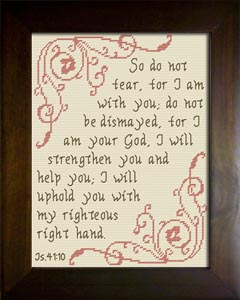 So do not
fear, for I am
with you; do not
be dismayed, for I
am your God, I will
strengthen you and
help you; I will
uphold you with
my righteous
right hand.
Is.41:10